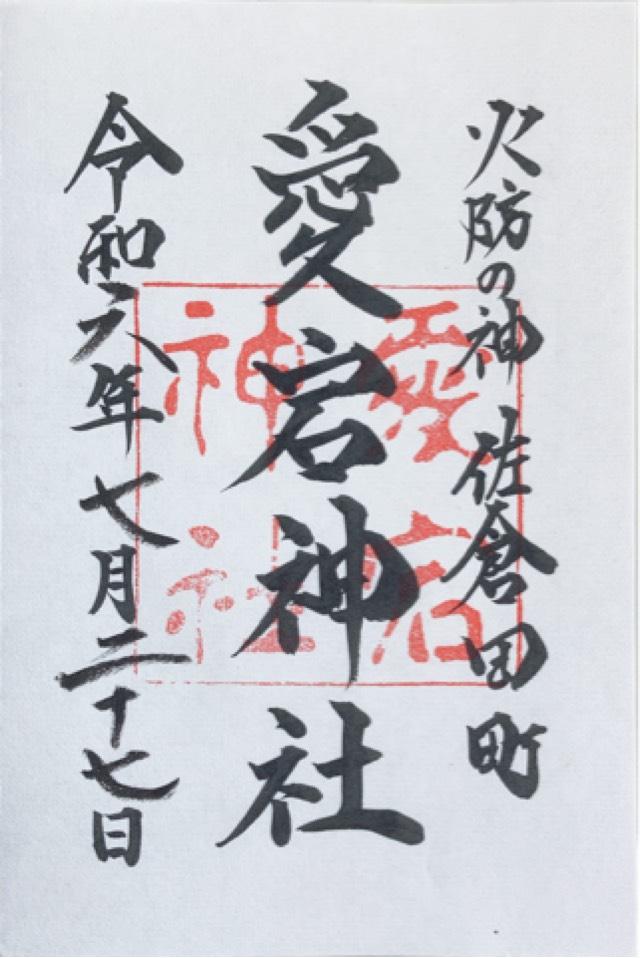 火防の神 佐倉田町
愛宕神社
令和六年七月二十七日
愛宕
神社